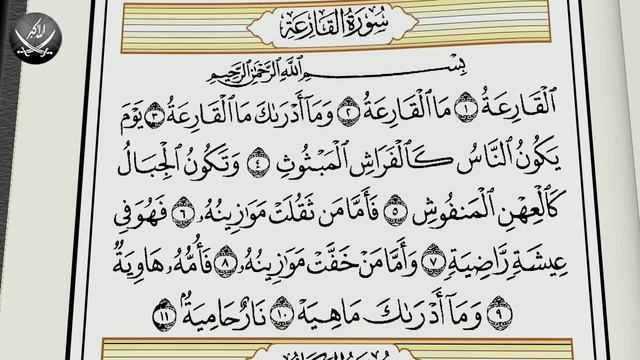 سُورَةُ القَارِعَةِ
بِسْمِ اللَّهِ الرَّحْمَٰنِ الرَّحِيمِ
الْقَارِعَةُ ١ مَا الْقَارِعَةُ ٢ وَمَا أَدْرَىٰكَ مَا الْقَارِعَةُ ٣ يَوْمَ
يَكُونُ النَّاسُ كَالْفَرَاشِ الْمَبْثُوثِ ٤ وَتَكُونُ الْجِبَالُ
كَالْعِهْنِ الْمَنفُوشِ ٥ فَأَمَّا مَن ثَقُلَتْ مَوَازِينُهُۥ ٦ فَهُوَ فِي
عِيشَةٍ رَّاضِيَةٍ ٧ وَأَمَّا مَنْ خَفَّتْ مَوَازِينُهُۥ ٨ فَأُمُّهُۥ هَاوِيَةٌ
٩ وَمَا أَدْرَىٰكَ مَا هِيَهْ ١٠ نَارٌ حَامِيَةٌ ١١